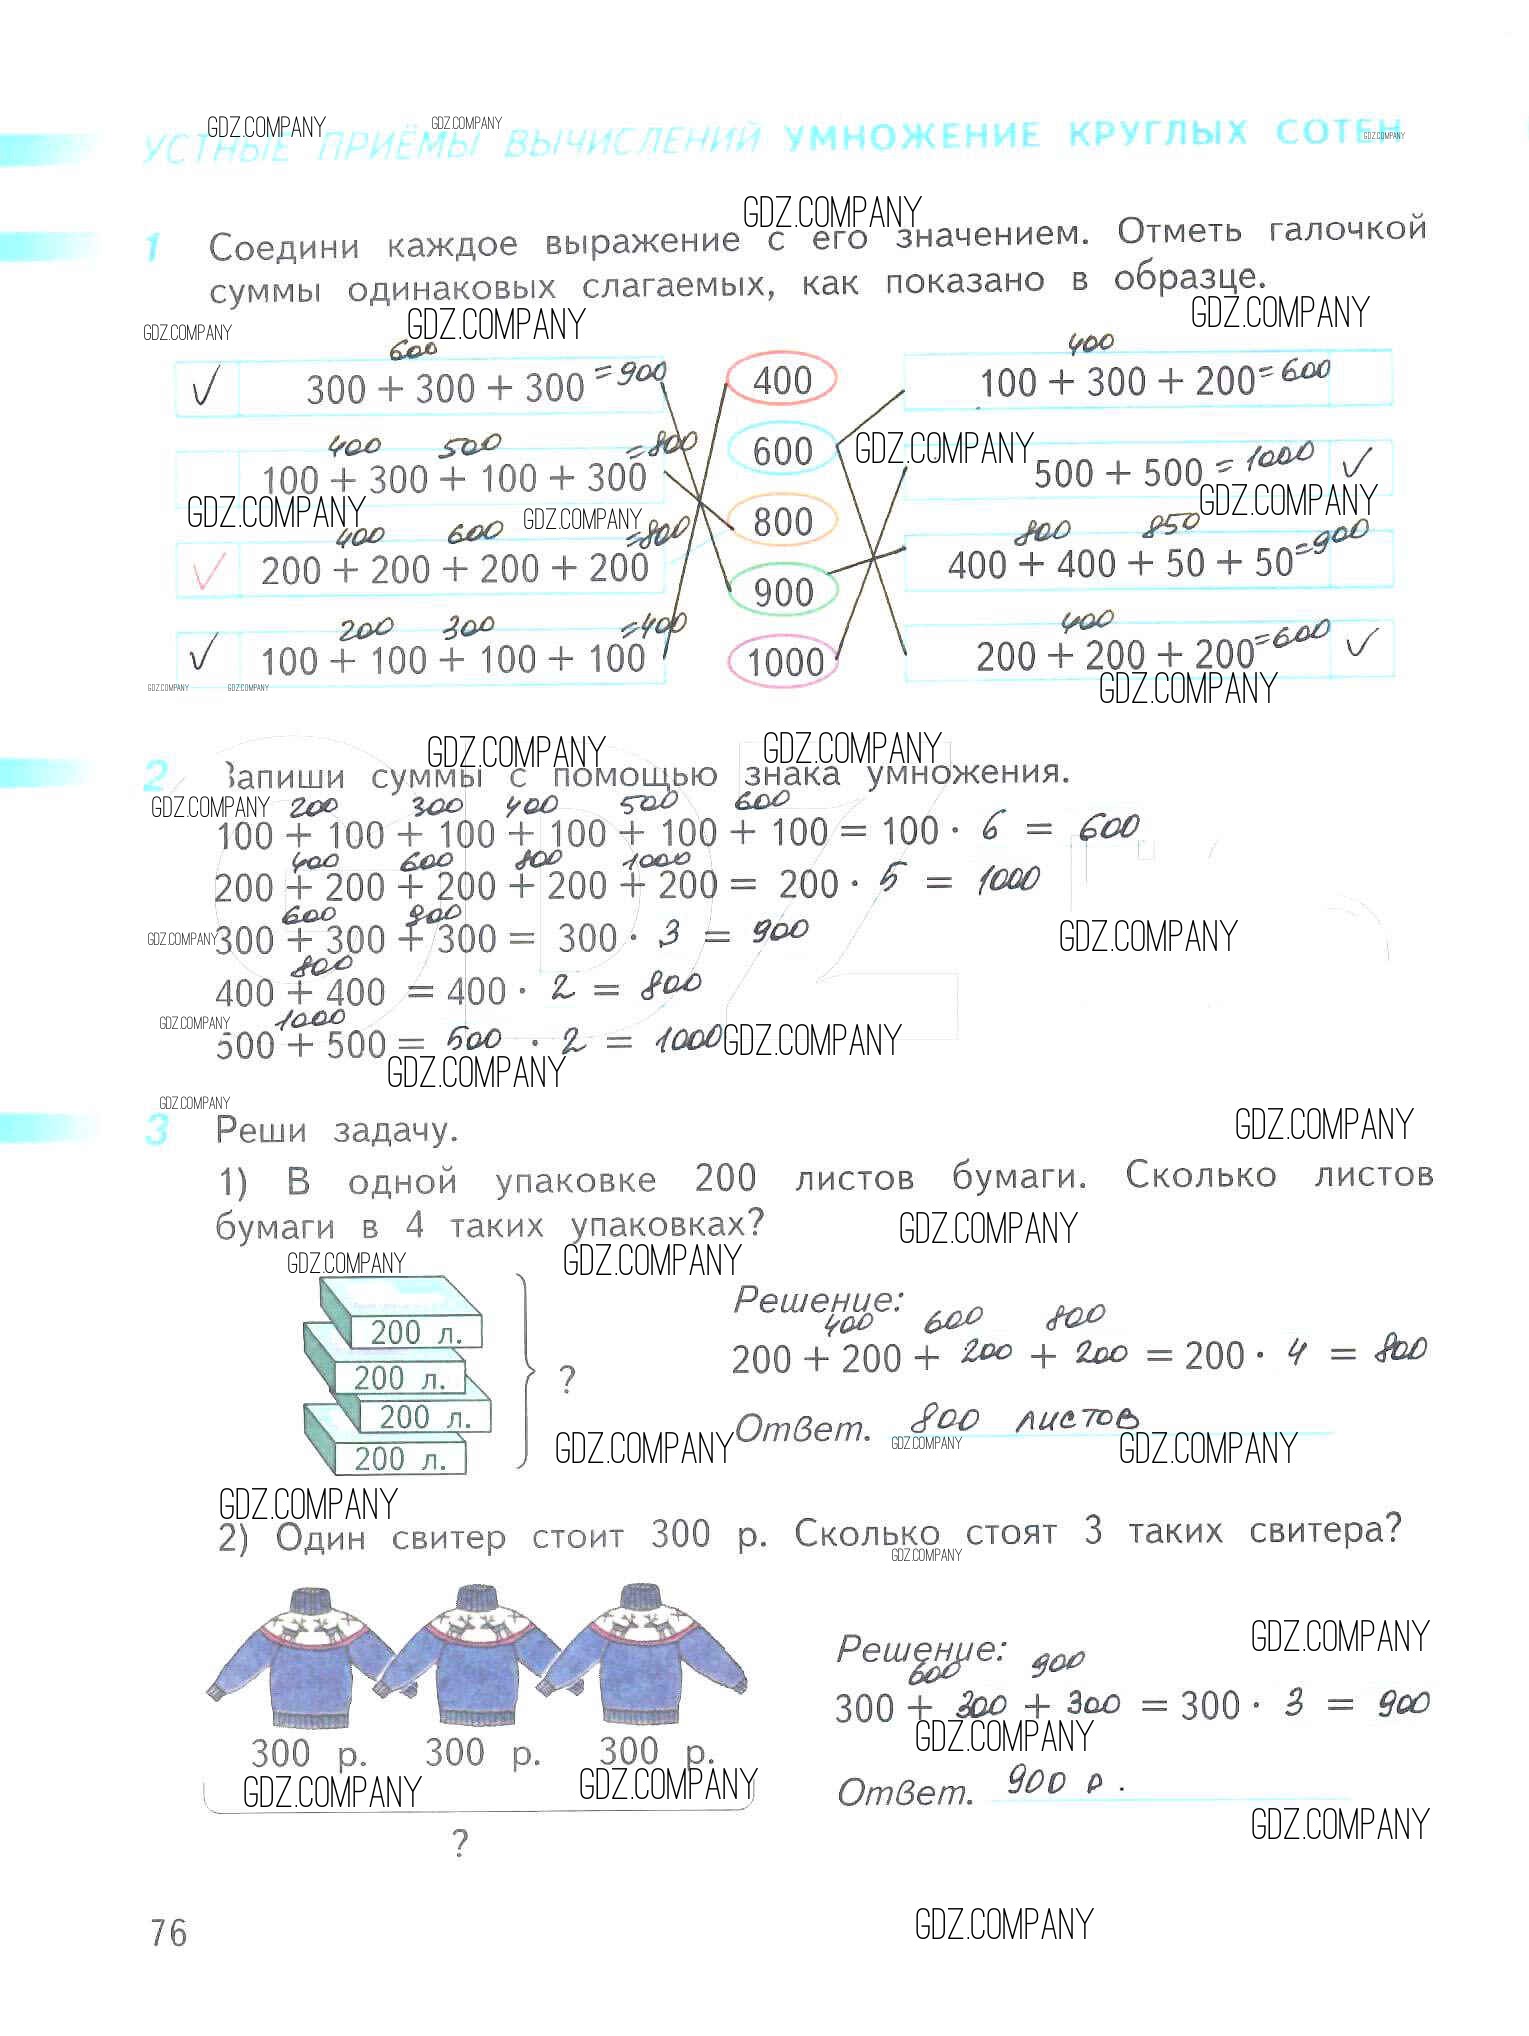 GDZ.COMPANY GDZ.COMPANY GDZ.COMPANY
УСТНЫЕ ПРИЁМЫ ВЫЧИСЛЕНИЙ УМНОЖЕНИЕ КРУГЛЫХ СОТЕН
GDZ.COMPANY
1 Соедини каждое выражение с его значением. Отметь галочкой
суммы одинаковых слагаемых, как показано в образце.
GDZ.COMPANY GDZ.COMPANY GDZ.COMPANY
600
✓ 300 + 300 + 300 = 900
400 500
100 + 300 + 100 + 300 = 800
GDZ.COMPANY GDZ.COMPANY
400 600
✓ 200 + 200 + 200 + 200 = 800
200 300
✓ 100 + 100 + 100 + 100 = 400
GDZ.COMPANY GDZ.COMPANY
400
600
800
900
1000
400
100 + 300 + 200 = 600
GDZ.COMPANY
500 + 500 = 1000 ✓
GDZ.COMPANY
800 850
400 + 400 + 50 + 50 = 900
400
200 + 200 + 200 = 600 ✓
GDZ.COMPANY
GDZ.COMPANY GDZ.COMPANY
2 Запиши суммы с помощью знака умножения.
GDZ.COMPANY
200 300 400 500 600
100 + 100 + 100 + 100 + 100 + 100 = 100 · 6 = 600
400 600 800 1000
200 + 200 + 200 + 200 + 200 = 200 · 5 = 1000
600 900
GDZ.COMPANY 300 + 300 + 300 = 300 · 3 = 900 GDZ.COMPANY
800
400 + 400 = 400 · 2 = 800
GDZ.COMPANY 1000
500 + 500 = 500 · 2 = 1000 GDZ.COMPANY
GDZ.COMPANY
GDZ.COMPANY
3 Реши задачу. GDZ.COMPANY
1) В одной упаковке 200 листов бумаги. Сколько листов
бумаги в 4 таких упаковках? GDZ.COMPANY
GDZ.COMPANY GDZ.COMPANY
200 л.
200 л.
200 л.
200 л.
?
Решение:
400 600 800
200 + 200 + 200 + 200 = 200 · 4 = 800
Ответ. 800 листов
GDZ.COMPANY GDZ.COMPANY GDZ.COMPANY
GDZ.COMPANY
2) Один свитер стоит 300 р. Сколько стоят 3 таких свитера?
GDZ.COMPANY
300 р. 300 р. 300 р.
GDZ.COMPANY GDZ.COMPANY
?
GDZ.COMPANY
Решение:
600 900
300 + 300 + 300 = 300 · 3 = 900
GDZ.COMPANY
Ответ. 900 р.
GDZ.COMPANY
GDZ.COMPANY
76